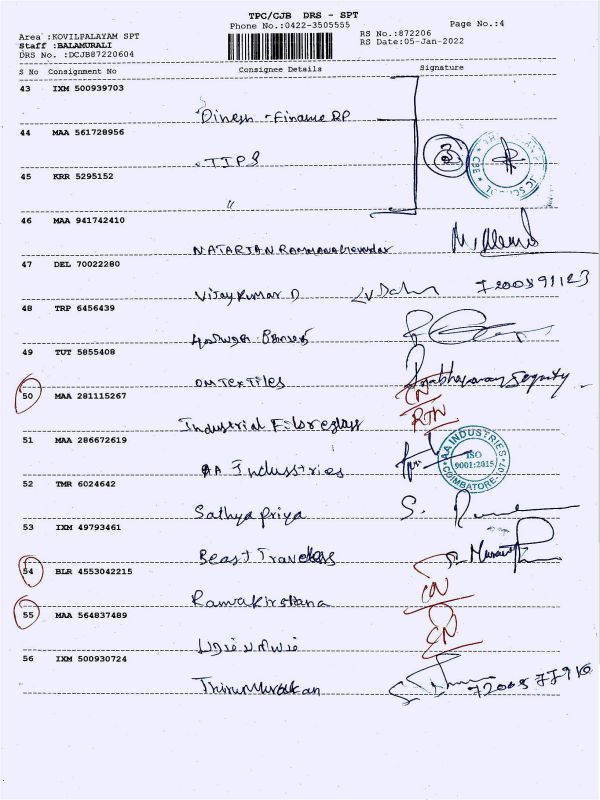 TPC/CJB DRS - SPT
Phone No.:0422-3505555
Page No.:4
Area :KOVILPALAYAM SPT
RS No.:872206
Staff :BALAMURALI
RS Date:05-Jan-2022
DRS No. :DCJB87220604
S No Consignment No Consignee Details Signature
43 IXM 500939703
Dinesh - Finance RP
44 MAA 561728956
TIPS
45 KRR 5295152
"
46 MAA 941742410
47 DEL 70022280
Vijay Kumar D
48 TRP 6456439
49 TUT 5855408
OM Textiles
50 MAA 281115267
CN
RTN
Industrial
51 MAA 286672619
AA INDUSTRIES
ISO
9001:2015
COIMBATORE
AA Indusstries
52 TMR 6024642
Sathya Priya
53 IXM 49793461
Beast Traveless
54 BLR 4553042215
CN
Ramakirshana
55 MAA 564837489
CN
56 IXM 500930724
Thirumurukan